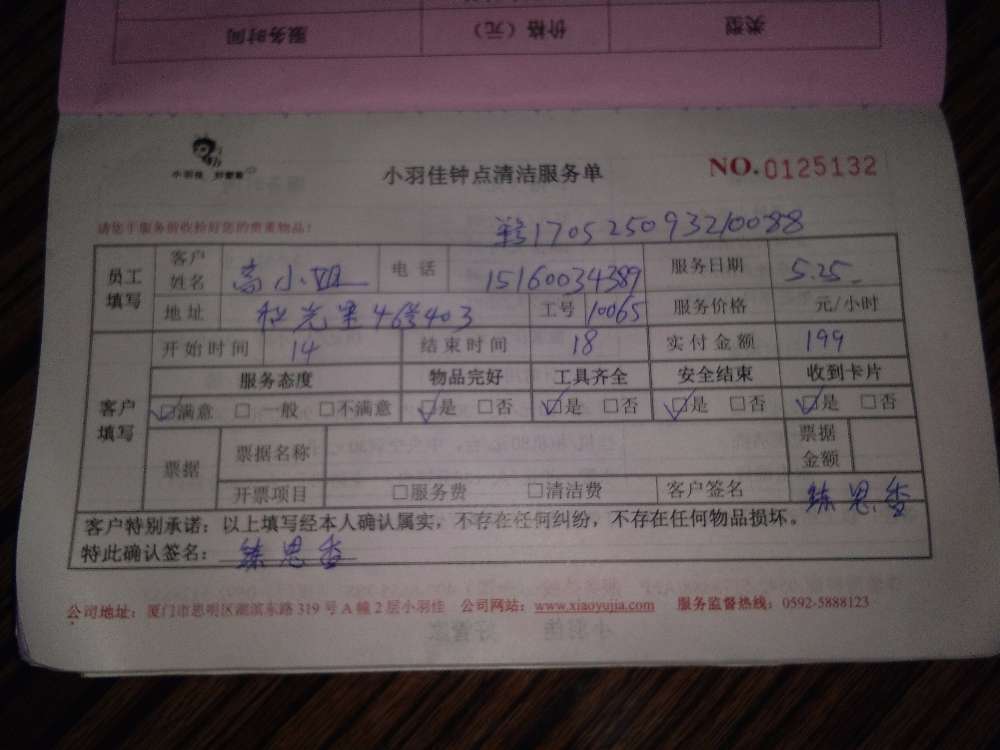 类型 价格（元） 服务时间
小羽佳 好管家
小羽佳钟点清洁服务单 NO.0125132
请您于服务前收拾好您的贵重物品！
单号170525093210088
员工填写 客户姓名 高小姐 电话 15160034389 服务日期 5.25
地址 46号403 工号 10065 服务价格 元/小时
客户填写 开始时间 14 结束时间 18 实付金额 199
服务态度 物品完好 工具齐全 安全结束 收到卡片
☑满意 □一般 □不满意 ☑是 □否 ☑是 □否 ☑是 □否 ☑是 □否
票据 票据名称 票据金额
开票项目 □服务费 □清洁费 客户签名 练思香
客户特别承诺：以上填写经本人确认属实，不存在任何纠纷，不存在任何物品损坏。
特此确认签名：练思香
公司地址：厦门市思明区湖滨东路319号A幢2层小羽佳 公司网站：www.xiaoyujia.com 服务监督热线：0592-5888123